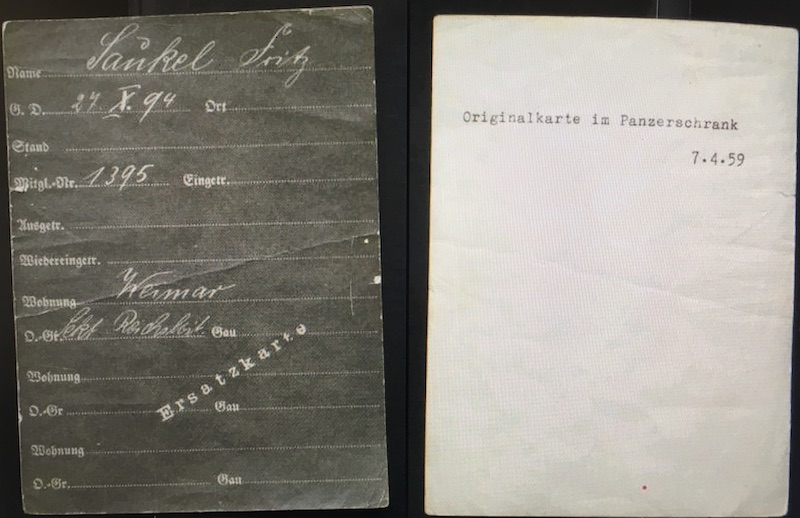 Name Saukel Fritz
G. D. 27. X. 94 Ort
Stand
Mitgl.-Nr. 1395 Eingetr.
Ausgetr.
Wiedereingetr.
Wohnung Weimar
O.-Gr. Sekt. Reichsleit. Gau
Ersatzkarte
Wohnung
O.-Gr Gau
Wohnung
O.-Gr. Gau
Originalkarte im Panzerschrank
7.4.59